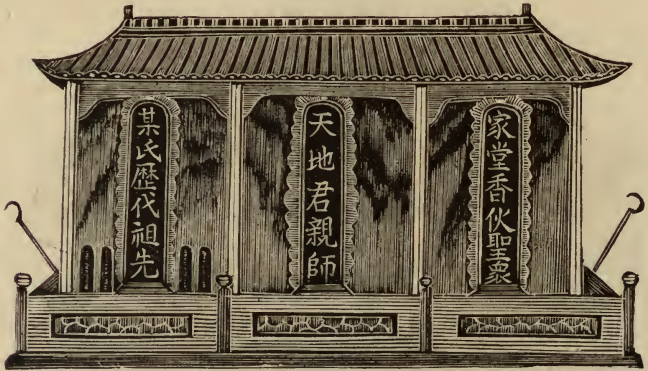 家堂香伙聖衆
天地君親師
某氏歷代祖先